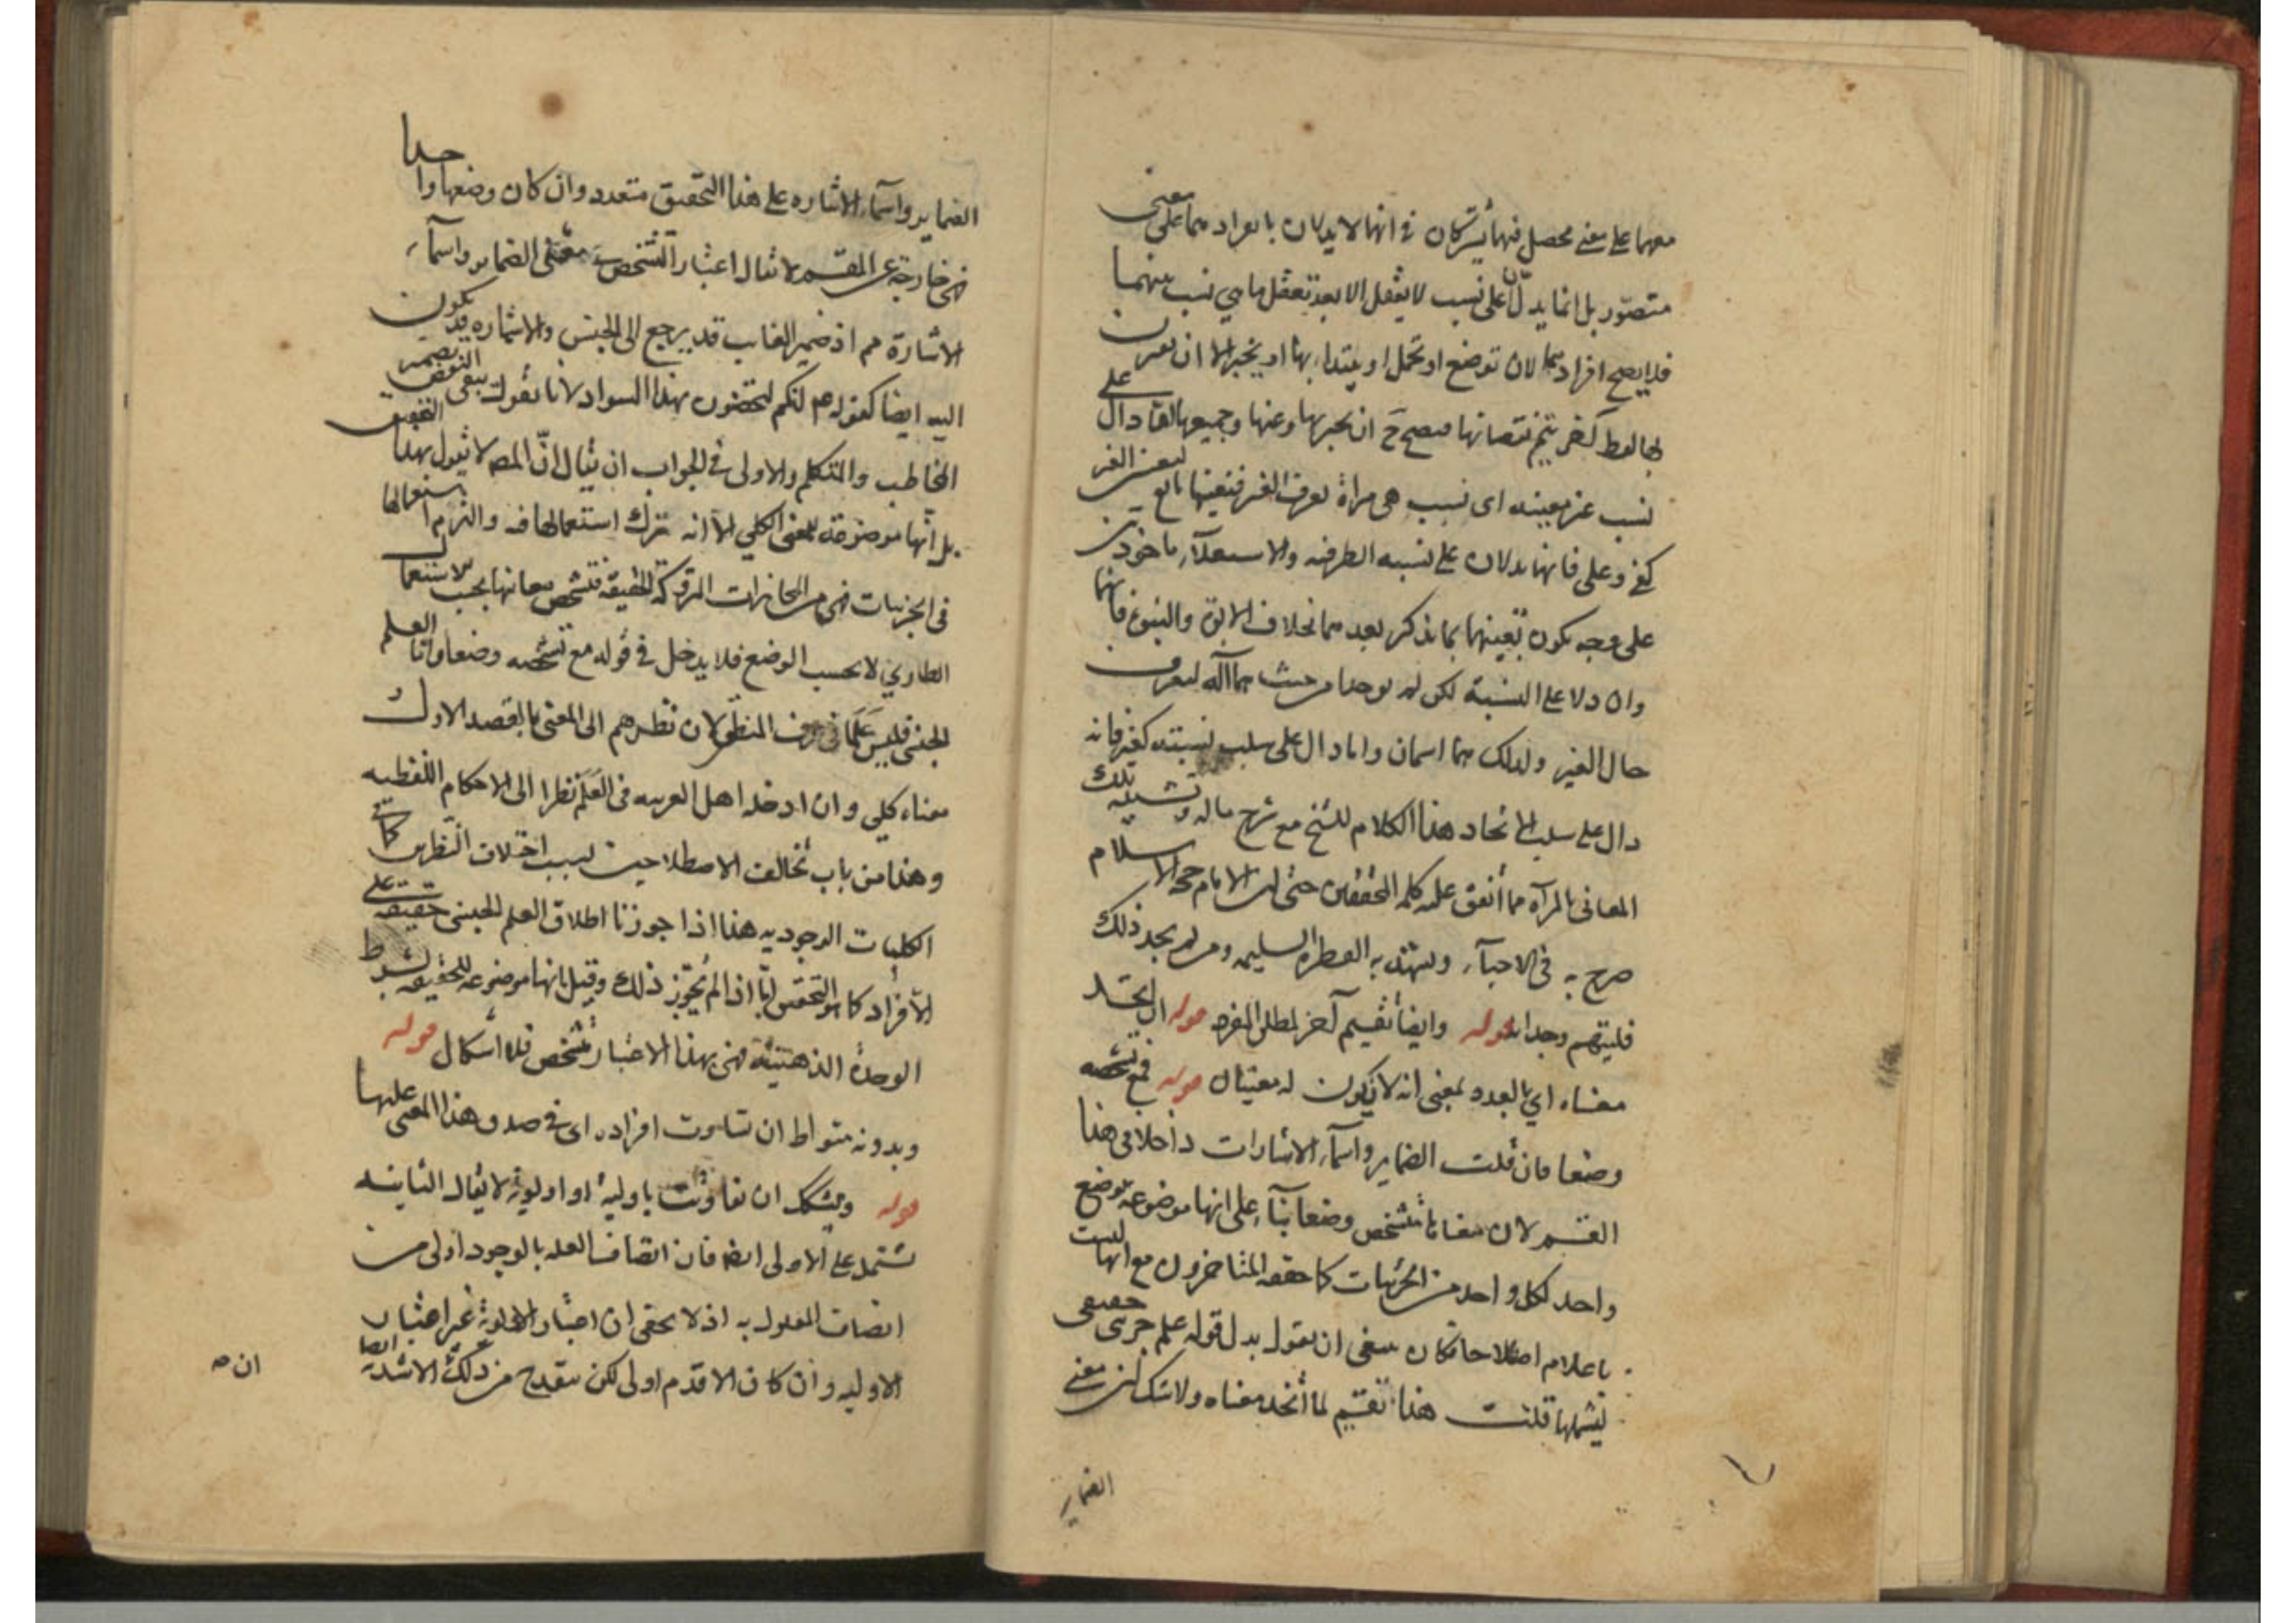 معهما على معنى محصل فيهما يشتركان في انهما لا يدلان بانفرادهما على معنى
متصور بل انما يدلان على نسب لا يعقل الا بعد تعقل ما هي نسب بينهما
فلا يصح افرادهما لان توضع او تحمل او يبتداء بها او يخبر الا ان تقرن
بها لفظ آخر يتم نقصانها فيصح ح ان يخبر بها وعنها وجميعها الفاظ دال على
نسب غير معينه اى نسب هى مراة لتعرف الغير فتعينها تابع لتعين الغير
كفى وعلى فانهما يدلان على نسبه الظرفيه والاستعلاء ماخوذين
على وجه يكون تعينهما بما يذكر بعدهما بخلاف الابوة والبنوة فانهما
وان دلا على النسبة لكن لم يوخذا من حيث هما آله لتعرف
حال الغير ولذلك هما اسمان واما دال على سلب نسبته كغير فانه
دال على سلب الاتحاد هذا الكلام للشيخ مع شرح ما له وتشبيه تلك
المعانى بالمرآه مما اتفق عليه كلمه المحققين حتى ان الامام حجه الاسلام
صرح به فى الاحياء ويشهد به الفطره السليمه ومن لم يجد ذلك
فليتهم وجدانه قوله وايضا تقسيم آخر لمطلق المفرد قوله ان اتحد
معناه اي بالعدد بمعنى انه لا يكون له معنيان قوله فمع تشخصه
وضعا فان قلت الضماير واسماء الاشارات داخلا فى هذا
القسم لان معناها متشخص وضعا بناء على انها موضوعة بوضع
واحد لكل واحد من الجزئيات كما حققه المتاخرون مع انها ليست
باعلام اصطلاحا فكان ينبغى ان يقول بدل قوله علم جزئى حقيقى
ليشملها قلت هذا تقسيم لما اتحد معناه ولا شك ان معنى
الضماير
الضماير واسماء الاشاره على هذا التحقيق متعدد وان كان وضعها واحدا
فهى خارجة عن المقسم لا يقال اعتبار التشخص فى معنى الضماير واسماء
الاشارة مم اذ ضمير الغايب قد يرجع الى الجنس والاشاره قد يكون
اليه ايضا كقوله عم لكم لتختضون بهذا السواد لانا نقول يبقى النقض بضمير
المخاطب والمتكلم والاولى فى الجواب ان يقال ان المصـ لا يقول بهذا التحقيق
بل انها موضوعة لمعنى الكلي الا انه ترك استعمالها فيه والتزم استعمالها
فى الجزئيات فهى من المجازات المتروكة الحقيقة فتشخص معانيها بحسب الاستعمال
الطاري لا بحسب الوضع فلا يدخل فى قوله مع تشخصه وضعا واما العلم
الجنسى فليس علما فى عرف المنطقى لان نظرهم الى المعنى بالقصد الاول و
معناه كلي وان ادخله اهل العربيه فى العلم نظرا الى الاحكام اللفظيه
وهذا من باب تخالف الاصطلاحين بسبب اختلاف النظرين كما فى
الكليات الوجوديه هذا اذا جوزنا اطلاق العلم الجنسى حقيقه على
الافراد كما هو التحقيق اما اذا لم نجوز ذلك وقيل بانها موضوعه للحقيقه بشرط
الوحدة الذهنية فهى بهذا الاعتبار متشخص فلا اشكال قوله
وبدونه متواط ان تساوت افراده اى فى صدق هذا المعنى عليها
قوله ويشكك ان تفاوتت باوليه او اولوية لا يقال الثانيه
تشتمل على الاولى ايضه فان اتصاف العله بالوجود اولى من
اتصاف المعلول به اذ لا يخفى ان اعتبار الاولوية غير اعتبار
الاوليه وان كان الاقدم اولى لكن يتقدح من ذلك الاشديه ايضا
ان صـ